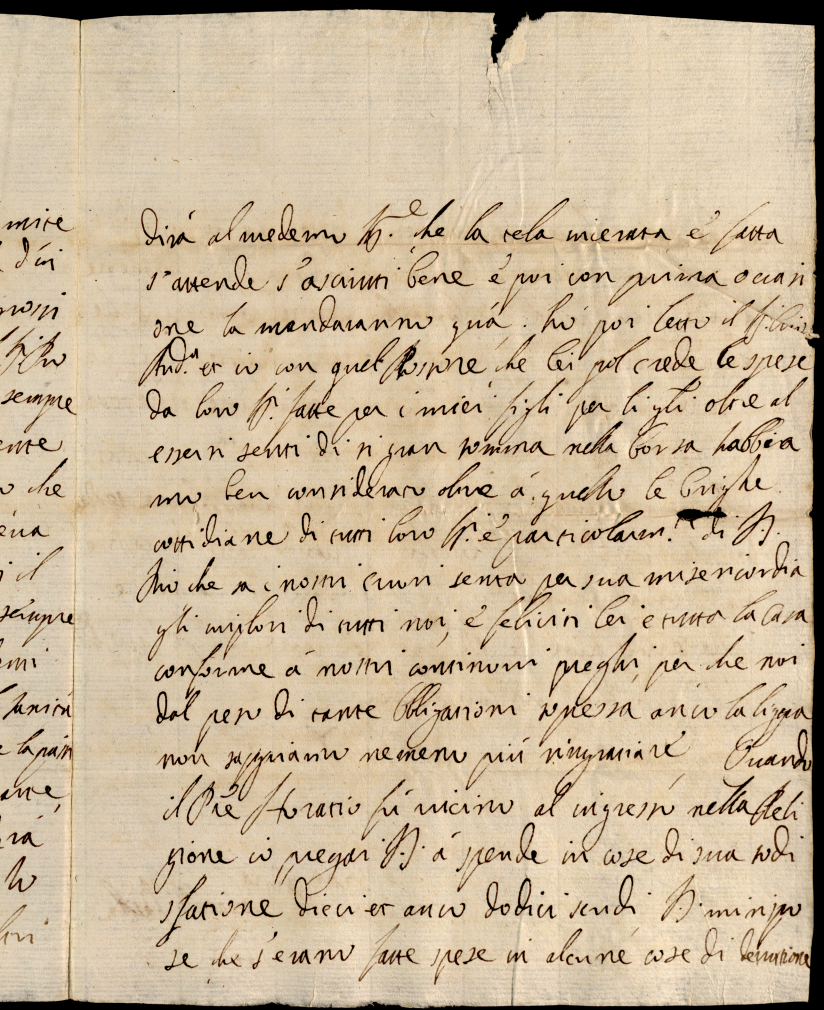 mire
d'ri
nostri
sempre
ente
che
il
sempre
dirà al medemo Sr.e che la tela incerata è fatta
s'attende s'asciutti bene è poi con prima occasi
one la mandaranno quà. hò poi letto il
et io con quel che lei pol crede le spese
da loro SS.ri fatte per i miei figli per li gli oltre al
esserci senti di si gran somma nella borsa habbia
mo ben considerato oltre à quello le brighe
cottidiane di tutti loro SS.ri è particolarm.te di V.S.
Dio che sa i nostri cuori senta per sua misericordia
gli migliori di tutti noi, è feliciti lei e tutta la Casa
conforme à nostri continovi preghi, per che noi
dal peso di tante Obligationi opressa anco la lingua
non sappiamo nemeno più ringratiare Quando
il Pre Horatio fù vicino al ingresso nella Reli
gione io pregai V.S. à spende in cose di sua sodi
sfatione dieci et anco dodici scudi V.S. mi rispo
se che s'erano fatte spese in alcune cose di devotione